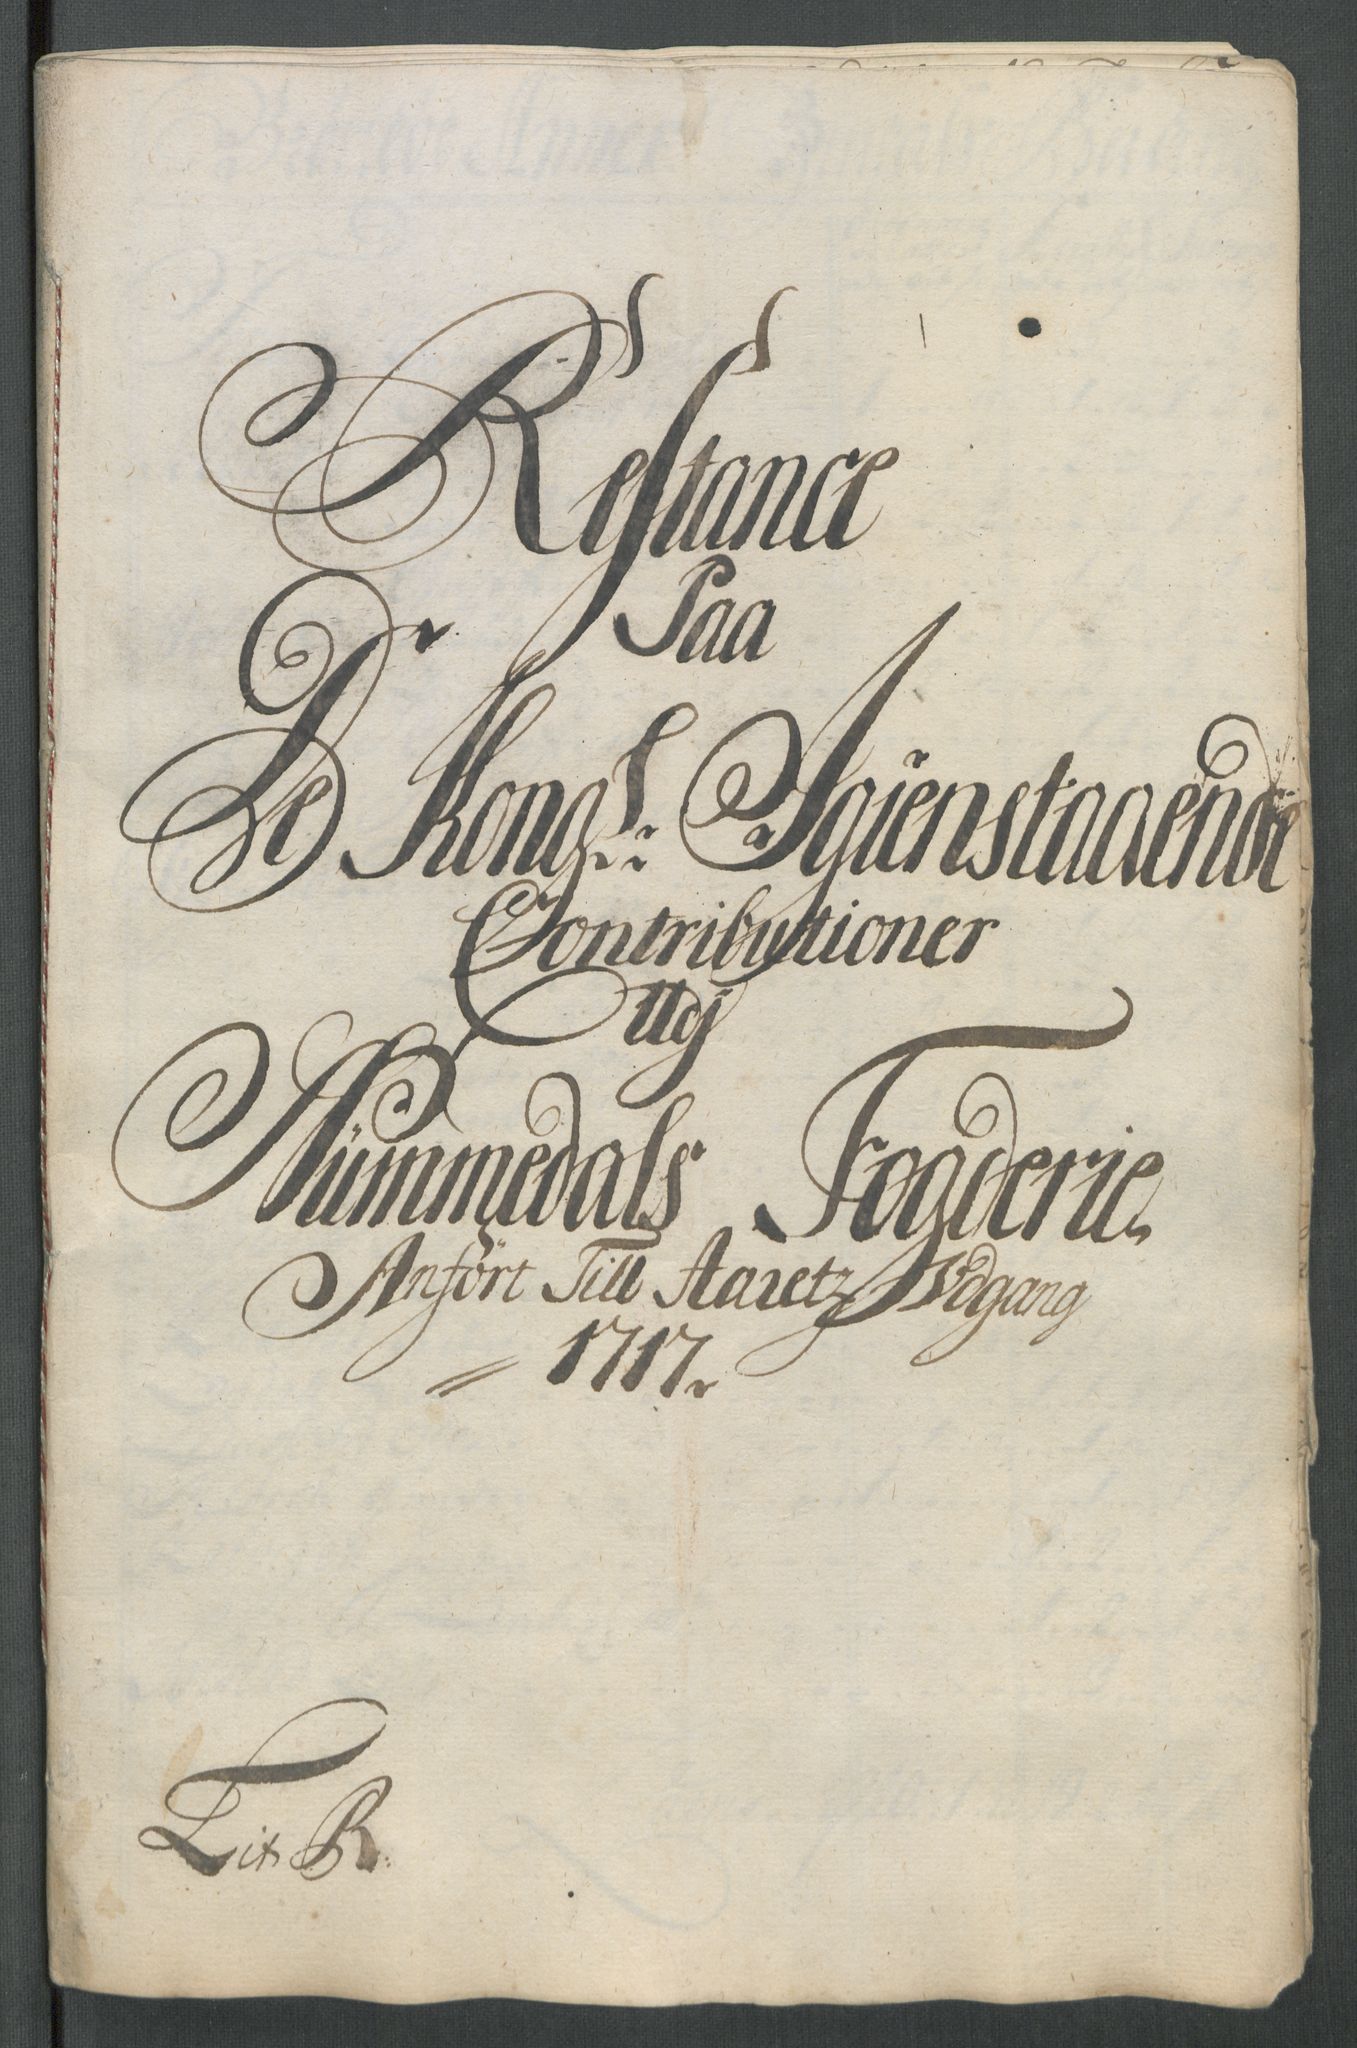 Restance
Paa
De Kongl: Igienstaaende
Contributioner
Udj
Nummedals Fogderie,
Anført Till Aaretz Udgang
1717.
Lit R: